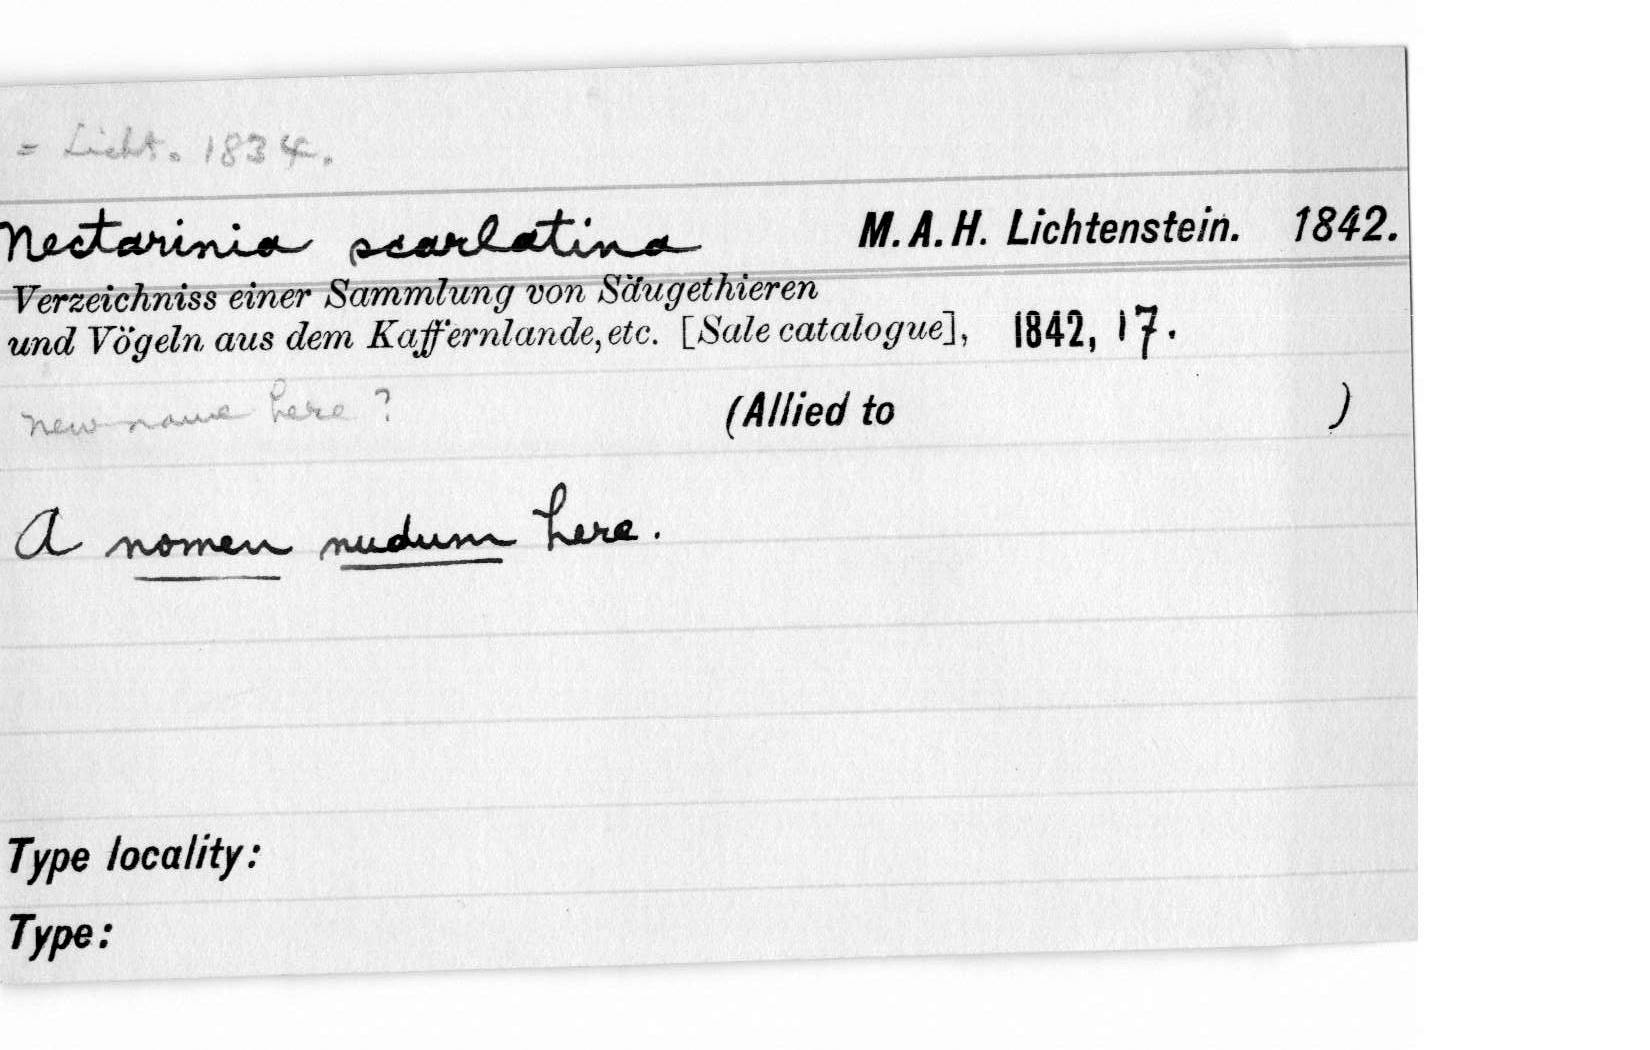 = Licht. 1834.
Nectarinia scarlatina M. A. H. Lichtenstein. 1842.
Verzeichniss einer Sammlung von Säugethieren
und Vögeln aus dem Kaffernlande, etc. [Sale catalogue], 1842, 17.
new name here ? (Allied to )
A nomen nudum here.
Type locality:
Type: